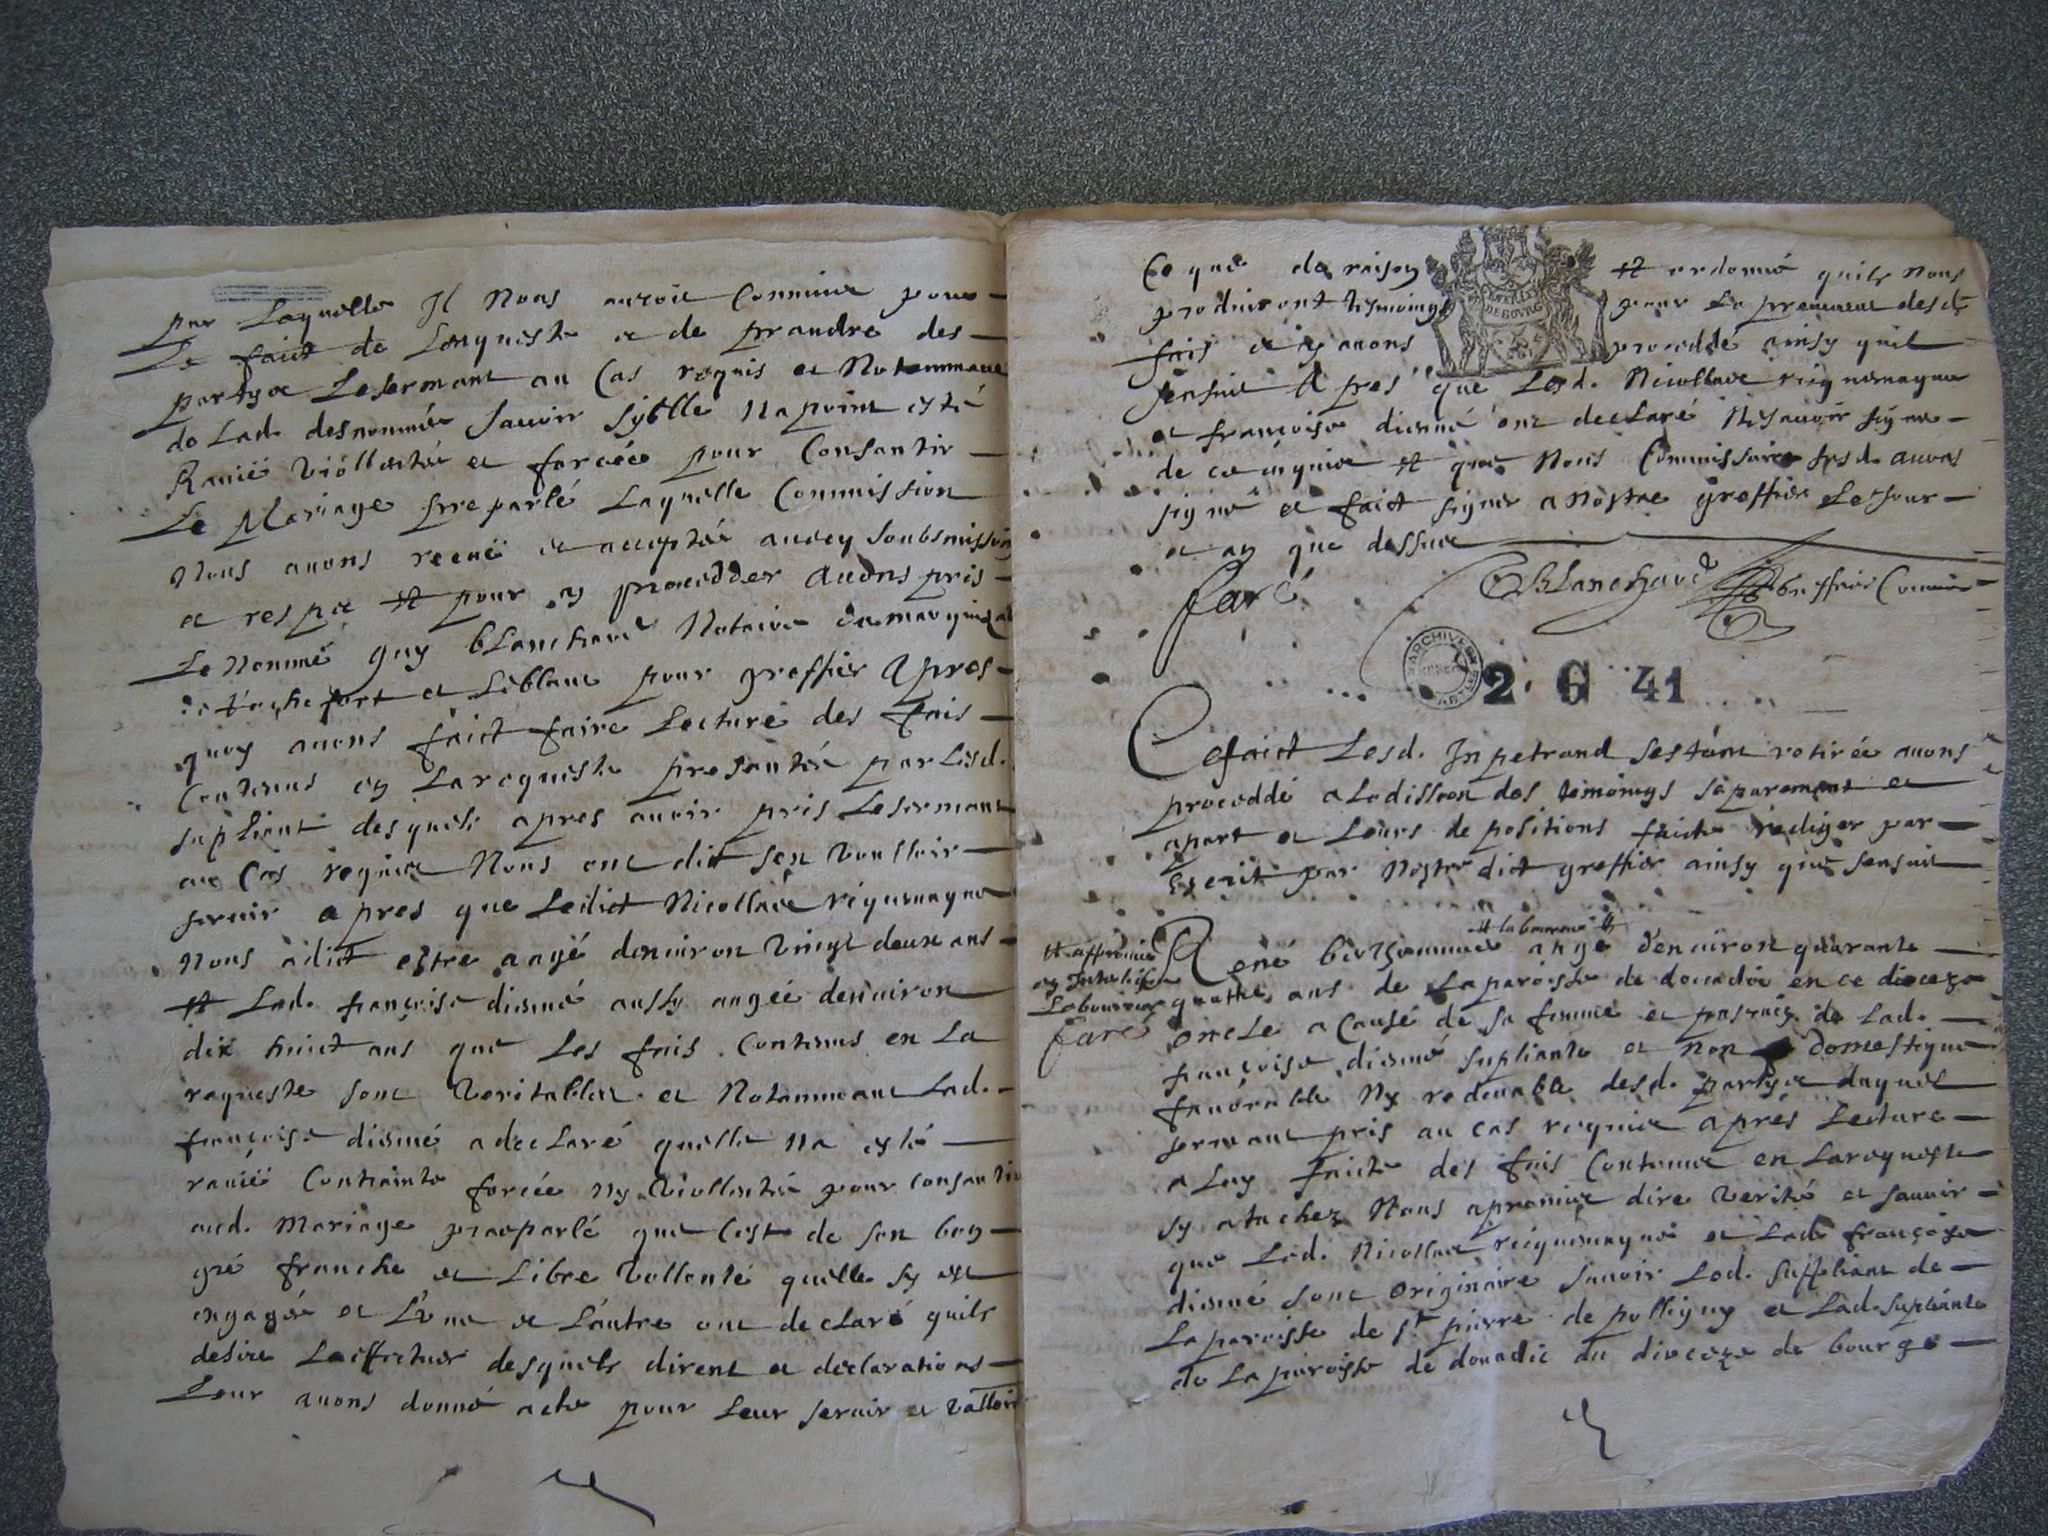 par Laquelle Il Nous auroit Commius pour
Le faict de Lenqueste et de prandre des
partyes Leserment au Cas requis et Notemmant
de Lad. desnommée sauoir sy elle Na point esté
Rauie viollentée et forcée pour Consantir
Le Mariage preparlé Laquelle Commission
Nous auons receuë et acceptée auecq soubsmission
et respect et pour y proceder Auons pris
Le Nommé guy blanchard Notaire du marquizat
de et Leblanc pour greffier Apres
quoy auons faict faire Lecture des fais
Contenus en La requeste presantée par Lesd.
supliant desquels apres auoir pris Leserment
au Cas requis Nous ont dict sen voulloir
seruir apres que Ledict Nicollas
Nous a dict estre aagé denuiron vingt deux ans
et Lad. françoise diemé aussy aagée denuiron
dix huict ans que Les fais Contenus en La
requeste sont veritables et Notammant Lad.
françoise diemé a declaré quelle Na esté
rauië Contrainte forcée Ny viollentée pour consantir
aud. Mariage preparlé que Cest de son bon
gré franche et Libre vollonté quelle sy est
engagée et L'vne et Lautre ont declaré quils
desire Laeffectuer desquels dirent et declarations
Leur auons donné acte pour Leur seruir et valloir
Ce que de raison et ordonné quils Nous
produiront tesmoings pour La preuue desd.
fais et y auons procedde ainsy quil
sensuit Apres que Led. Nicollas
et françoise diemé ont declaré Nesauoir signer
de ce enquis et que Nous Commissaire susd. auons
signé et faict signer a Nostre greffier Le Jour
et an que dessus
faré Blanchard Greffier Commis
ARCHIVES
2 G 41
Cefaict Lesd. Inpetrand sestant retirée auons
proceddé a Lodission des temoings separement et
apart et Leurs depositions faicte rediger par
Escrit par Nostre dict greffier ainsy que sensuit
et laboureur
René berthommier aagé denuiron quarante
quattre ans de La paroisse de douadic en ce dioceze
et approuué
en Interligne
Laboureur
faré
oncle a Cause de sa femme et de Lad.
françoise diemé supliante et non domestique
fauorable Ny redeuable desd. partyes duquel
serment pris au cas requis apres Lecture
a Luy faicte des fais Contenus en La requeste
sy atachez Nous a promis dire verité et sauoir
que Led. Nicollas et Lad. françoise
diemé sont originaire sauoir Led. suppliant de
La paroisse de st. pierre de polligny et Lad. supliante
de La paroisse de douadic du dioceze de bourge